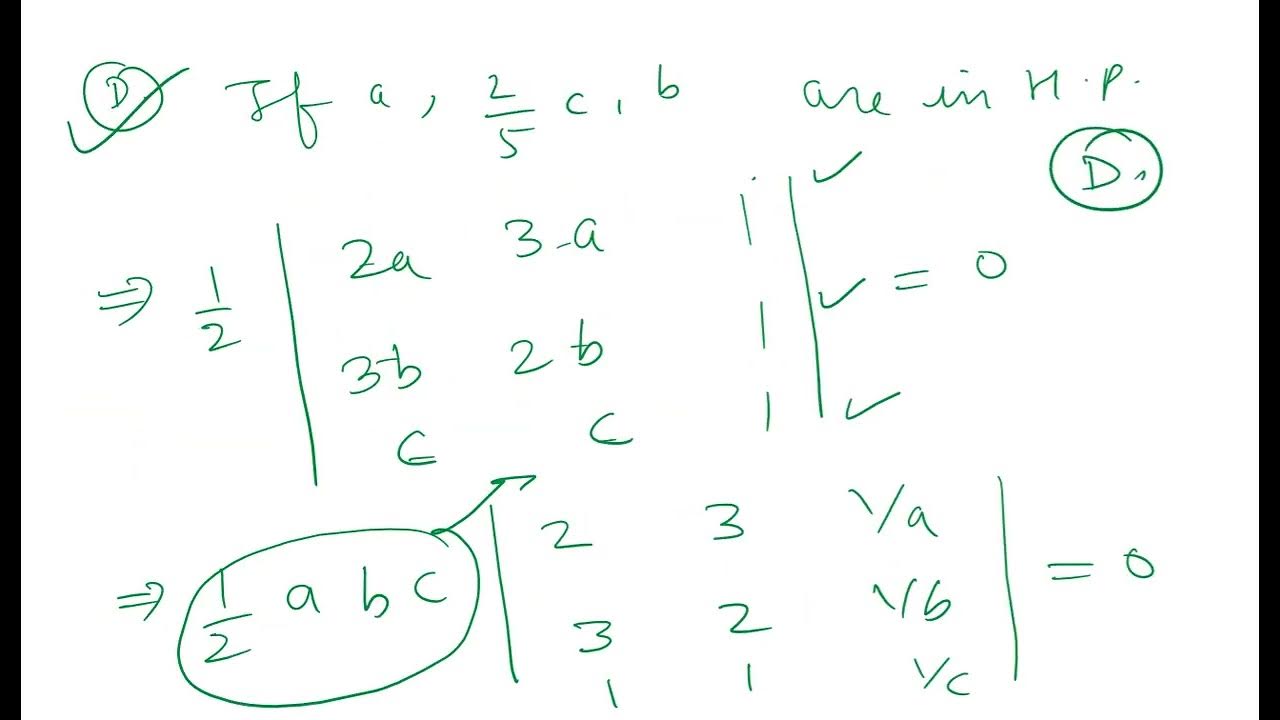 D If a, 2/5 c, b are in H.P.
D.
⇒ 1/2 | 2a 3a 1 |
| 3b 2b 1 | = 0
| c c 1 |
⇒ 1/2 abc | 2 3 1/a | = 0
| 3 2 1/b |
| 1 1 1/c |